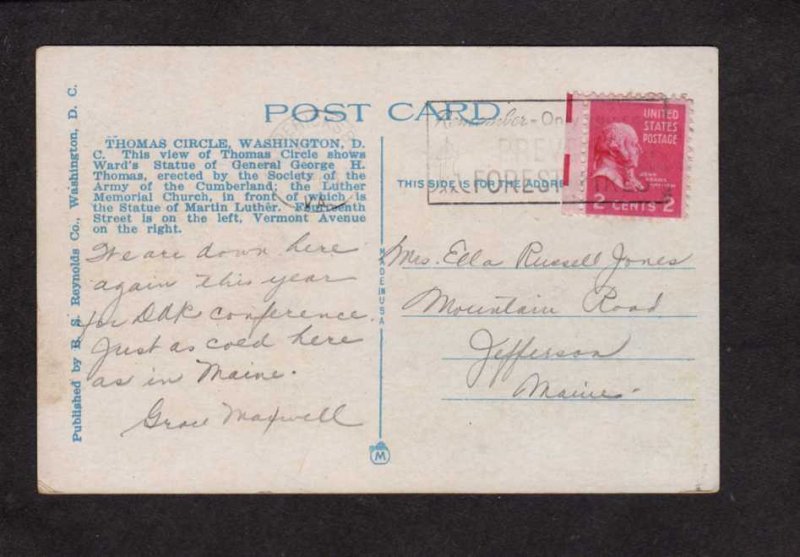 POST CARD
THOMAS CIRCLE, WASHINGTON, D.
C. This view of Thomas Circle shows
Ward's Statue of General George H.
Thomas, erected by the Society of the
Army of the Cumberland; the Luther
Memorial Church, in front of which is
the Statue of Martin Luther. Fourteenth
Street is on the left, Vermont Avenue
on the right.
Published by B. S. Reynolds Co., Washington, D. C.
We are down here
again this year
for DAR conference.
Just as cold here
as in Maine.
Grace Maxwell
MADE IN USA
M
THIS SIDE IS FOR THE ADDRE
Remember - On
PREV
FOREST
UNITED
STATES
POSTAGE
JOHN
ADAMS
2 CENTS 2
Mrs. Ella Russell Jones
Mountain Road
Jefferson
Maine